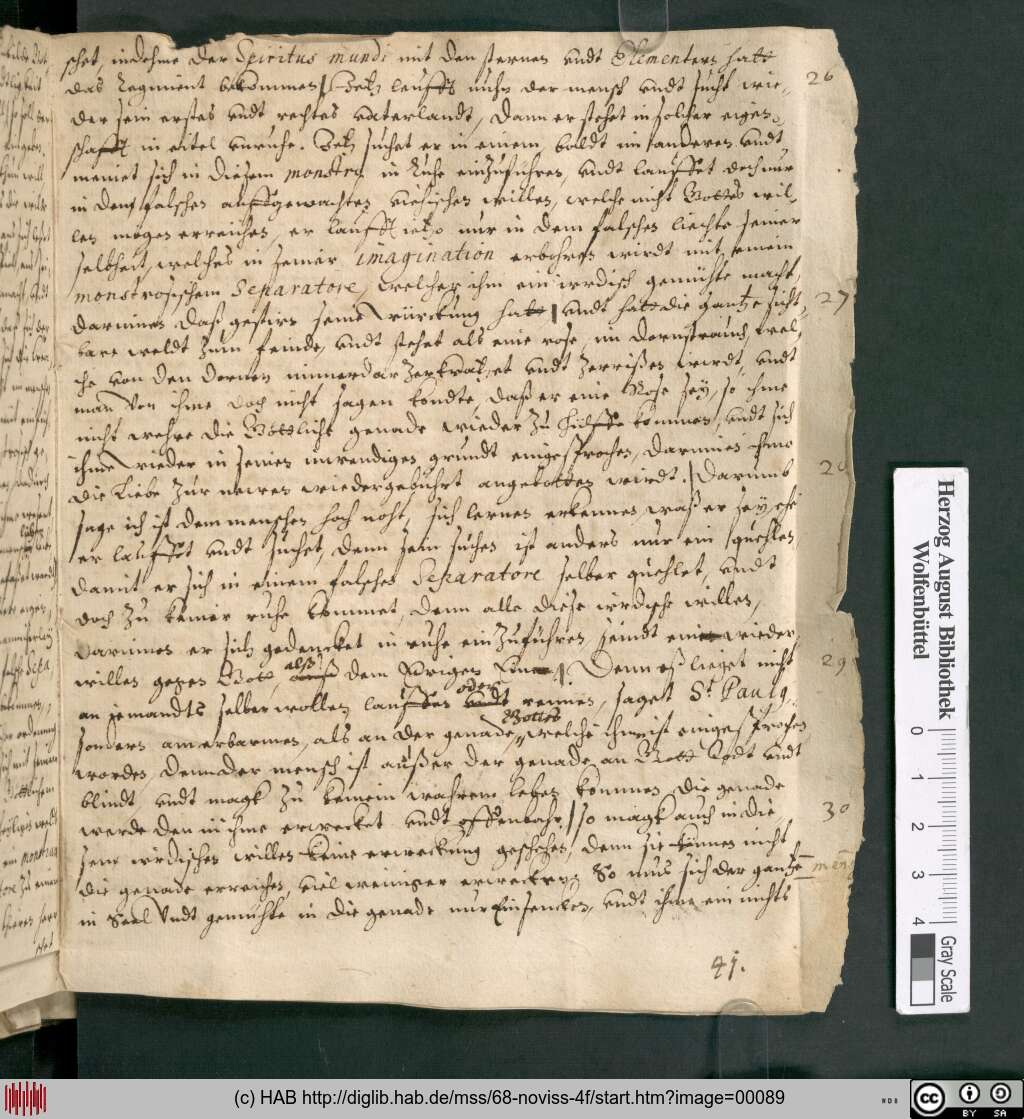 schet, in dehme der Spiritus mundi mit den sternen undt Elementen hatt
das Regiment bekommen | Jetz leufft nuhn der mensch undt sucht wie- 26
der sein erstes undt rechtes vaterlandt, dann er stehet in solcher eigen-
schafft in eitel unruhe. Jetz suchet er in einem baldt im anderen undt
meinet sich in diesem monstro in Ruhe einzuführen, undt lauffet doch nur
in dem falschen auffgewachten viehischen willen, welche nicht Gottes wil-
len mögen erreichen, er laufft jetzo nur in dem falschen liechte seiner
selbheit, welches in seiner imagination erbohren wirdt mit einem
monstrosischem Separatore, welcher ihm ein irrdisch gemühte macht,
darinnen daß gestirn seine würckung hatt | undt hatt die gantze sicht- 27
bare weldt zum feinde, undt stehet als eine rose im dornstrauch, wel-
che von den dornen immerdar zerkratzet undt zerrißen wirdt, undt
man von ihme doch nicht sagen köndte, daß er eine Rose sey, so ihme
nicht wehre die Göttliche genade wieder zu hülffe kommen, undt sich
ihme wieder in seinen inwendigen grundt eingesprochen, darinnen ihme
die Liebe zur newen wiedergebuhrt angebotten wirdt. | Darumb 28
sage ich ist dem menschen hoch noht, sich lernen erkennen, waß er sey, ehe
er lauffet undt suchet, denn sein suchen ist anders nur ein quehlen
damit er sich in einem falschen Separatore selber quehlet, undt
doch zu keiner ruhe kommet, denn alle diese irrdische willen,
darinnen er sich gedencket in ruhe ein zuführen, seindt ein wieder
willen gegen Gott, alß dem Ewigen Einen | Denn eß lieget nicht 29
an jemandts selber wollen lauffen oder rennen, saget St Paulq
sondern am erbarmen, als an der genade Gottes, welche ihm ist eingesprochen
worden, denn der mensch ist außer der genade an Gott Todt undt
blindt undt magk zu keinem wahrem leben kommen, die genade
werde den in ihme erwecket undt offenbahr | so magk auch in die 30
sem irrdischen willen keine erweckung geschehen, denn sie können nicht
die genade erreichen, viel weiniger erwecken, So mus sich der gantze men-
in Seel undt gemühte in die genade nur Einsencken, undt ihme ein nichts
41.
Herzog August Bibliothek
Wolfenbüttel
0 1 2 3 4
Gray Scale
(c) HAB http://diglib.hab.de/mss/68-noviss-4f/start.htm?image=00089
WDB
cc BY SA